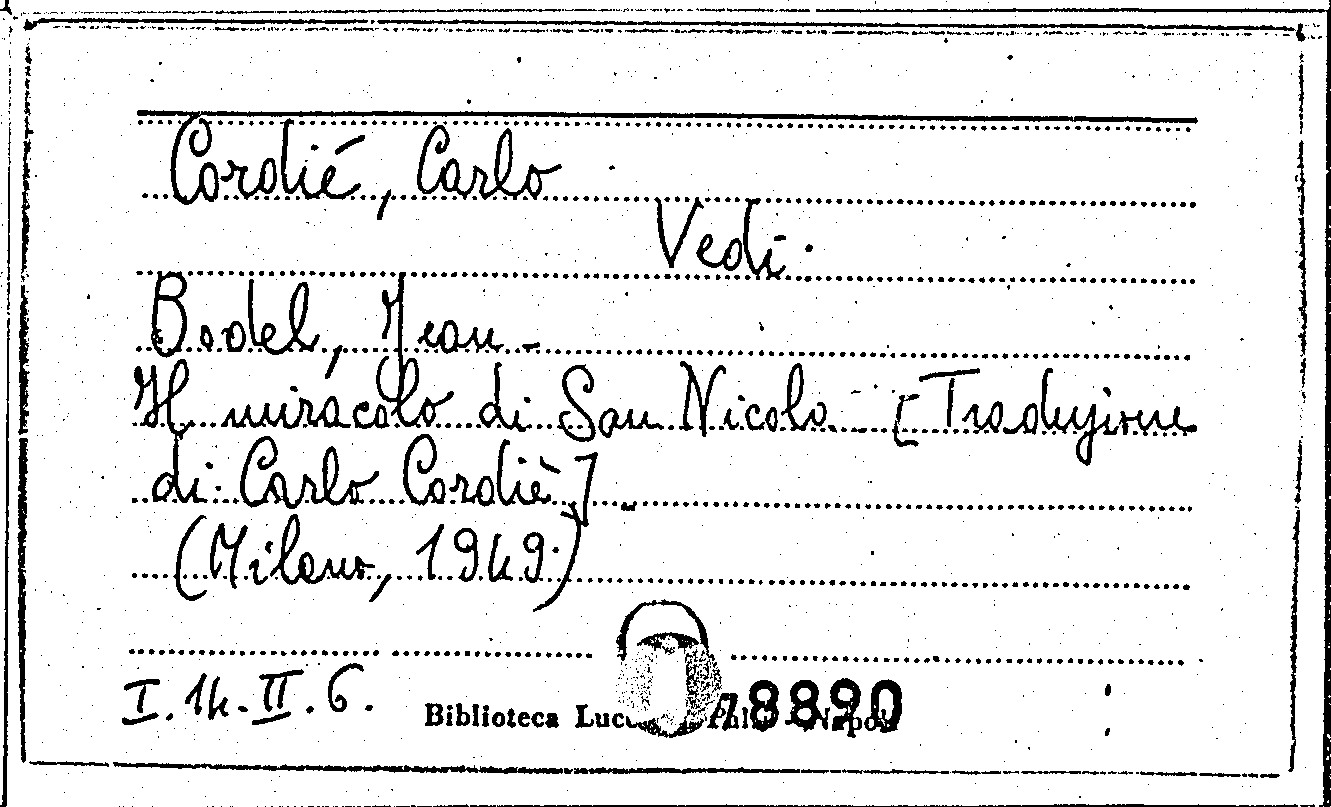 Cordié, Carlo
Vedi:
Bodel, Jean -
Il miracolo di San Nicolo. - [Traduzione
di Carlo Cordiè] -
(Milano, 1949.)
I. 14. II. 6.
Biblioteca Napoli 8890